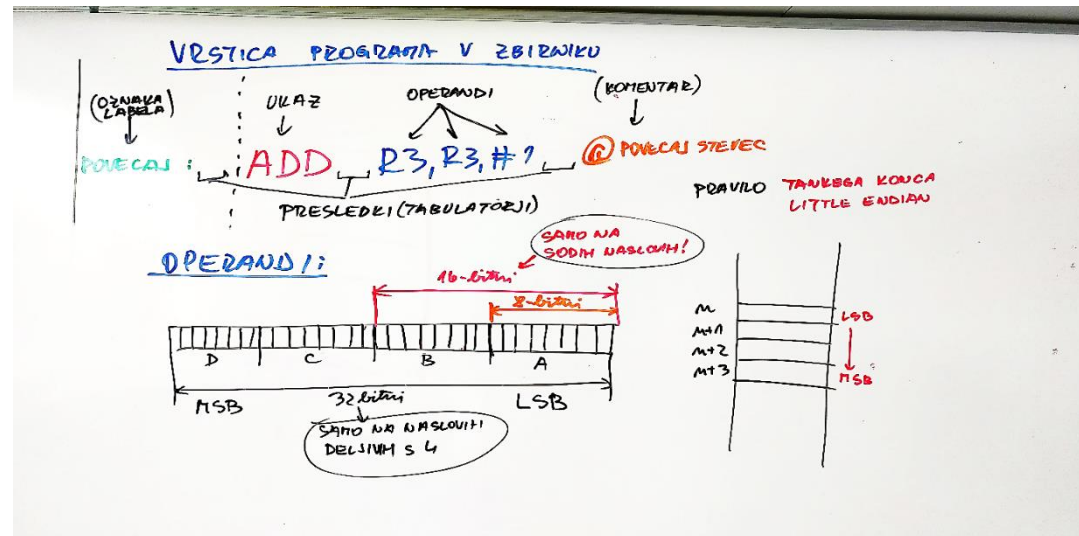 VRSTICA PROGRAMA V ZBIRNIKU
(OZNAKA LABELA)
UKAZ
OPERANDI
(KOMENTAR)
POVECAJ : ADD R3, R3, #1 @ POVECAJ STEVEC
PRESLEDKI (TABULATORJI)
PRAVILO TANKEGA KONCA
LITTLE ENDIAN
OPERANDI:
SAMO NA
SODIH NASLOVIH!
16-bitni
8-bitni
D C B A
MSB 32 bitni LSB
SAMO NA NASLOVIH
DELJIVIH S 4
m LSB
m+1
m+2
m+3 MSB